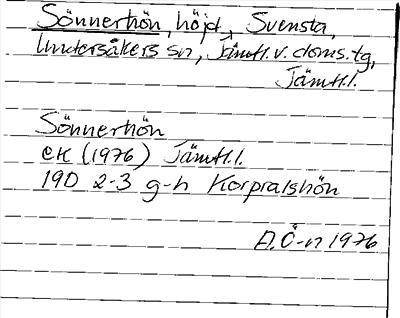 Sönnerhön, höjd, Svensta,
Undersåkers sn, Jämtl. v. doms. tg,
Jämtl.l.
Sönnerhön
ek (1976) Jämtl.l.
19D 2-3 g-h Korpralshön
A.Ö-n 1976